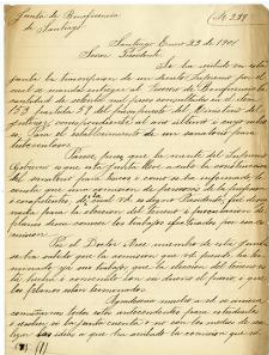 Junta de Beneficencia (No. 229)
de Santiago
Santiago Enero 23 de 1901
Señor Presidente
Se ha recibido en esta
junta la transcripcion de un decreto Supremo por el
cual se manda entregar al Tesorero de Beneficencia la
cantidad de setenta mil pesos consultados en el Item
153 partida 39 del presupuesto del Ministerio del
correspondiente al año último i cuyo
es, Para el establecimiento de un sanatorio para
tuberculosos
Parece, pues, que la mente del Supremo
Gobierno es que esta junta lleve a cabo la construccion
del sanatorio para tísicos; i como se ha informado, le
consta que una comision de personas de la profesion
i competentes, de la cual Ud. es digno Presidente, fué
para la eleccion del terreno i formacion de
planos desea conocer los trabajos efectuados por esa co-
mision.
Por el Doctor miembro de esta junta
se ha sabido que la comision que Ud. preside ha ter-
minado ya sus trabajos, que la eleccion del terreno es-
tá hecha i convenido con su dueño el precio, i que
los planos estan terminados.
Agradeceria mucho a Ud. se sirviera
comunicarme todos estos antecedentes para estudiarlos
i decidir, si la junta cuenta o no con los medios de
la obra que ha iniciado la comision que
(1)